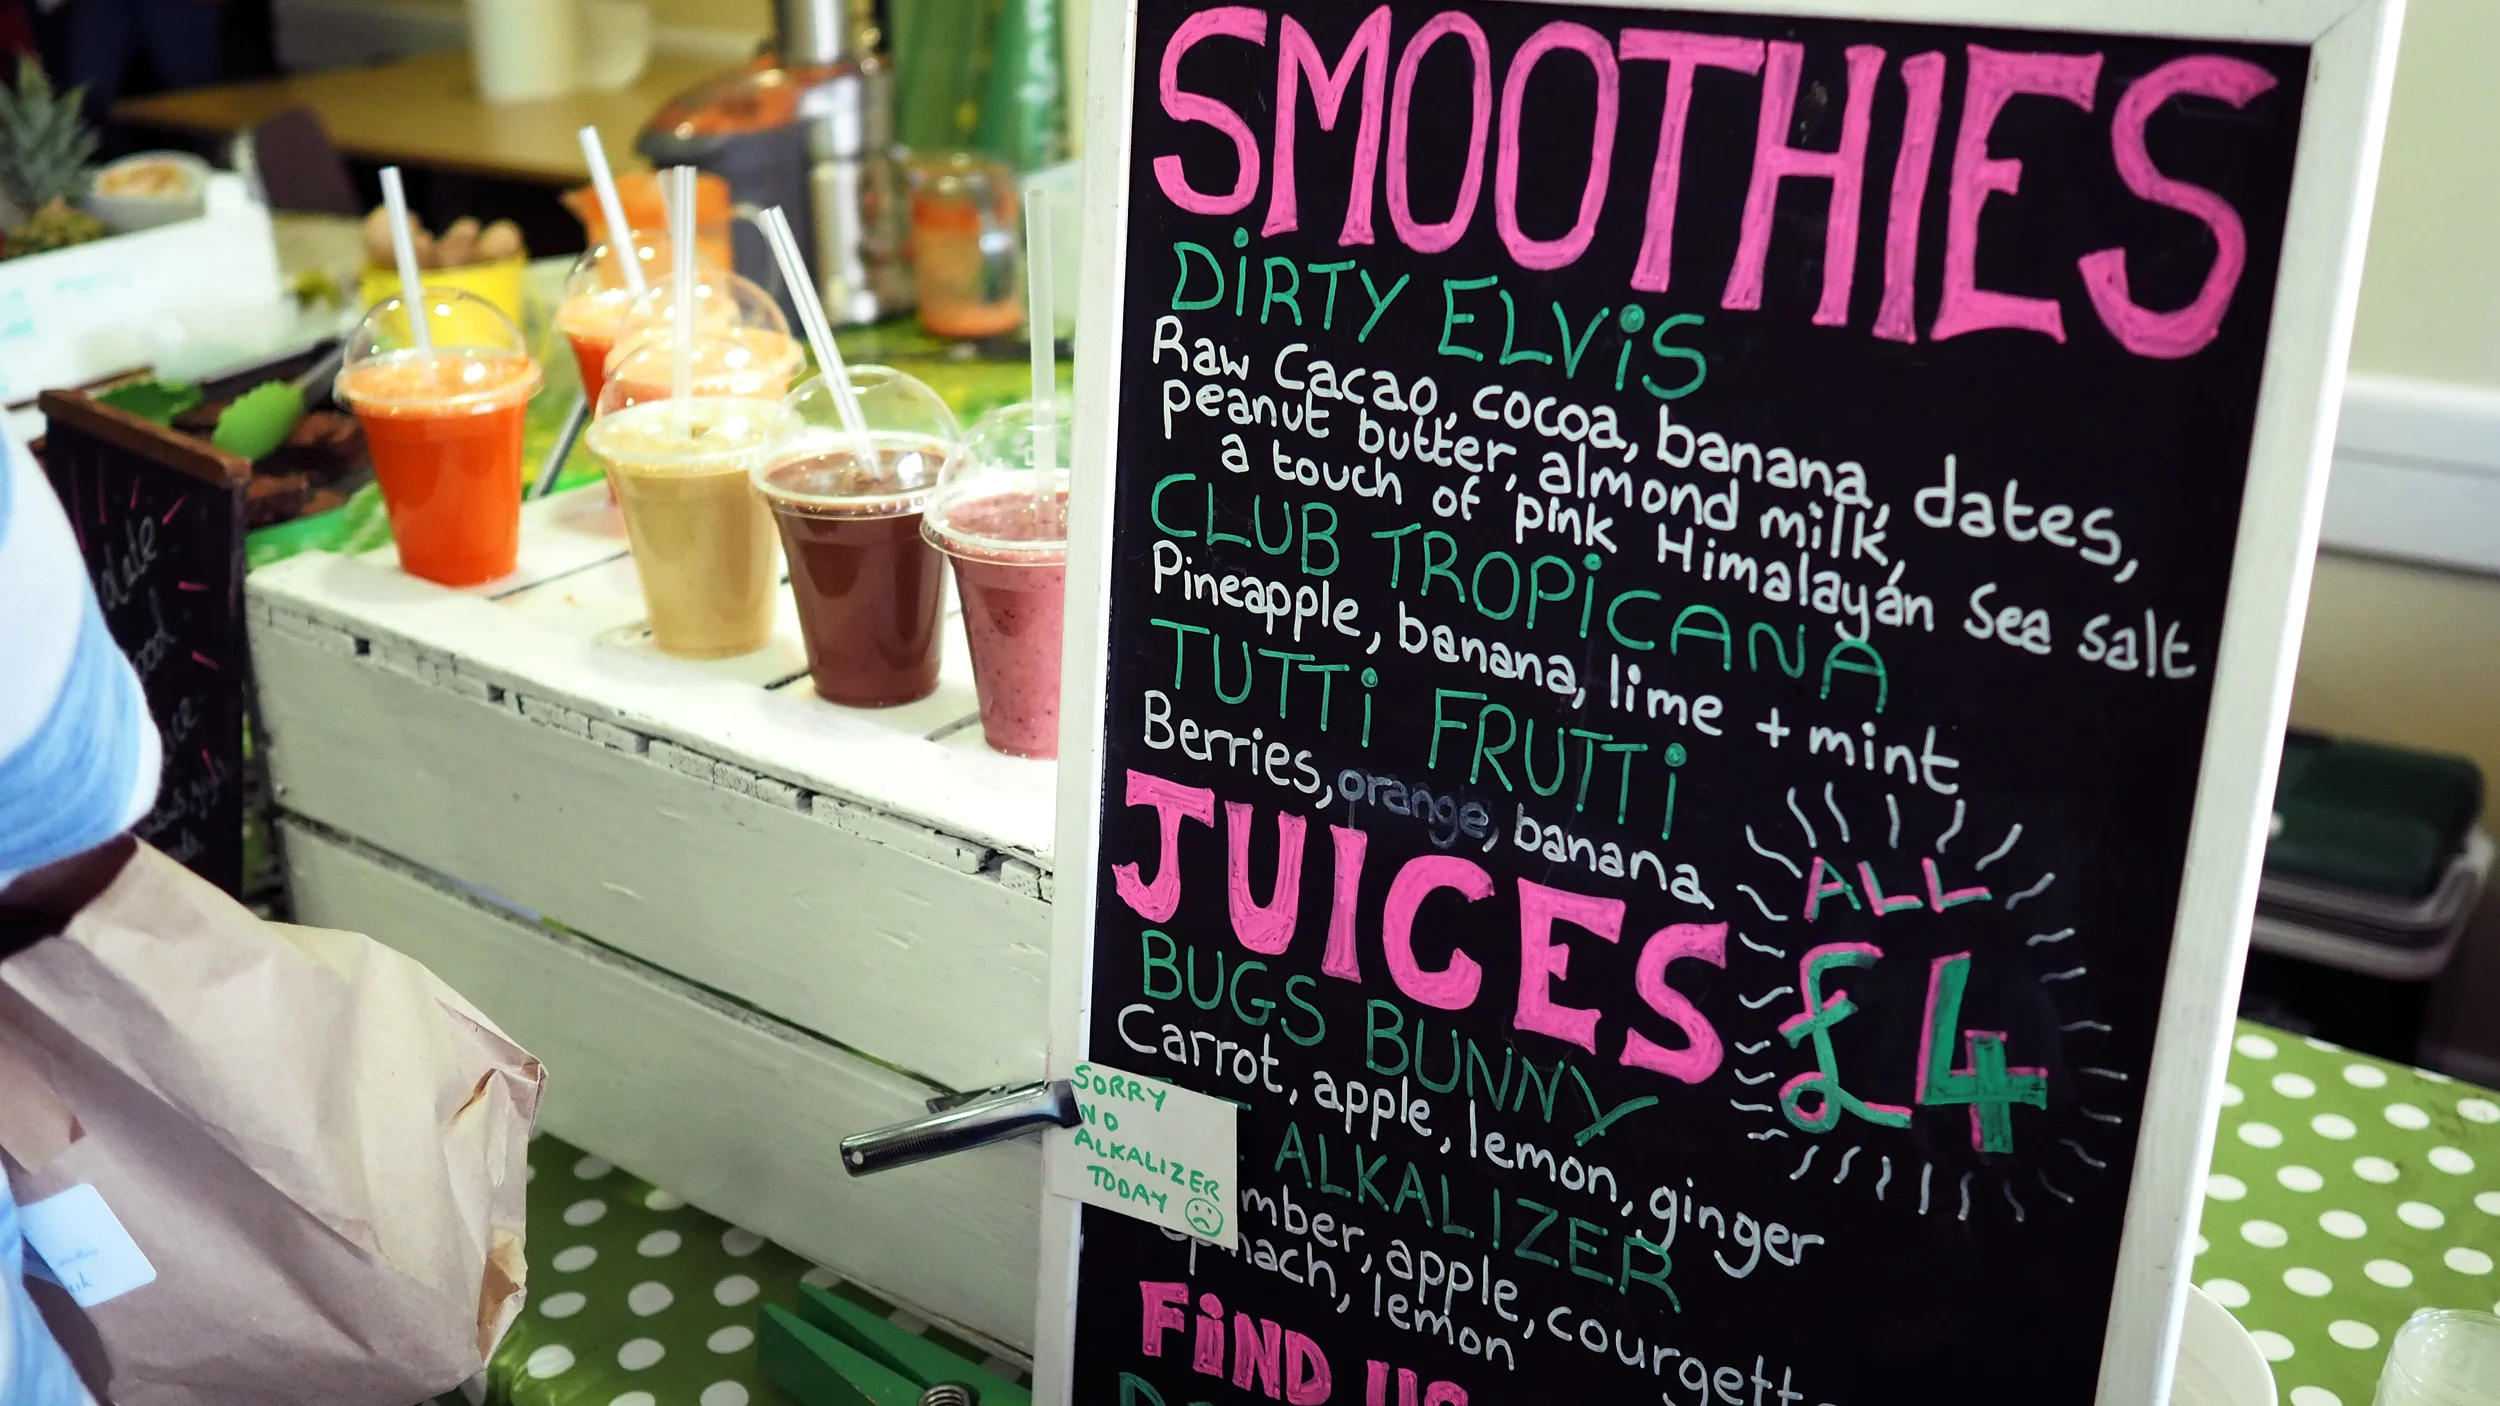 SMOOTHIES
DiRTY ELViS
Raw Cacao, cocoa, banana, dates,
peanut butter, almond milk,
a touch of pink Himalayan sea salt
CLUB TROPiCANA
Pineapple, banana, lime + mint
TUTTi FRUTTi
Berries, orange, banana
JUICES
ALL
£4
BUGS BUNNY
Carrot, apple, lemon, ginger
ALKALIZER
mber, apple, courgett
spinach, lemon
SORRY
NO
ALKALIZER
TODAY
FiND US